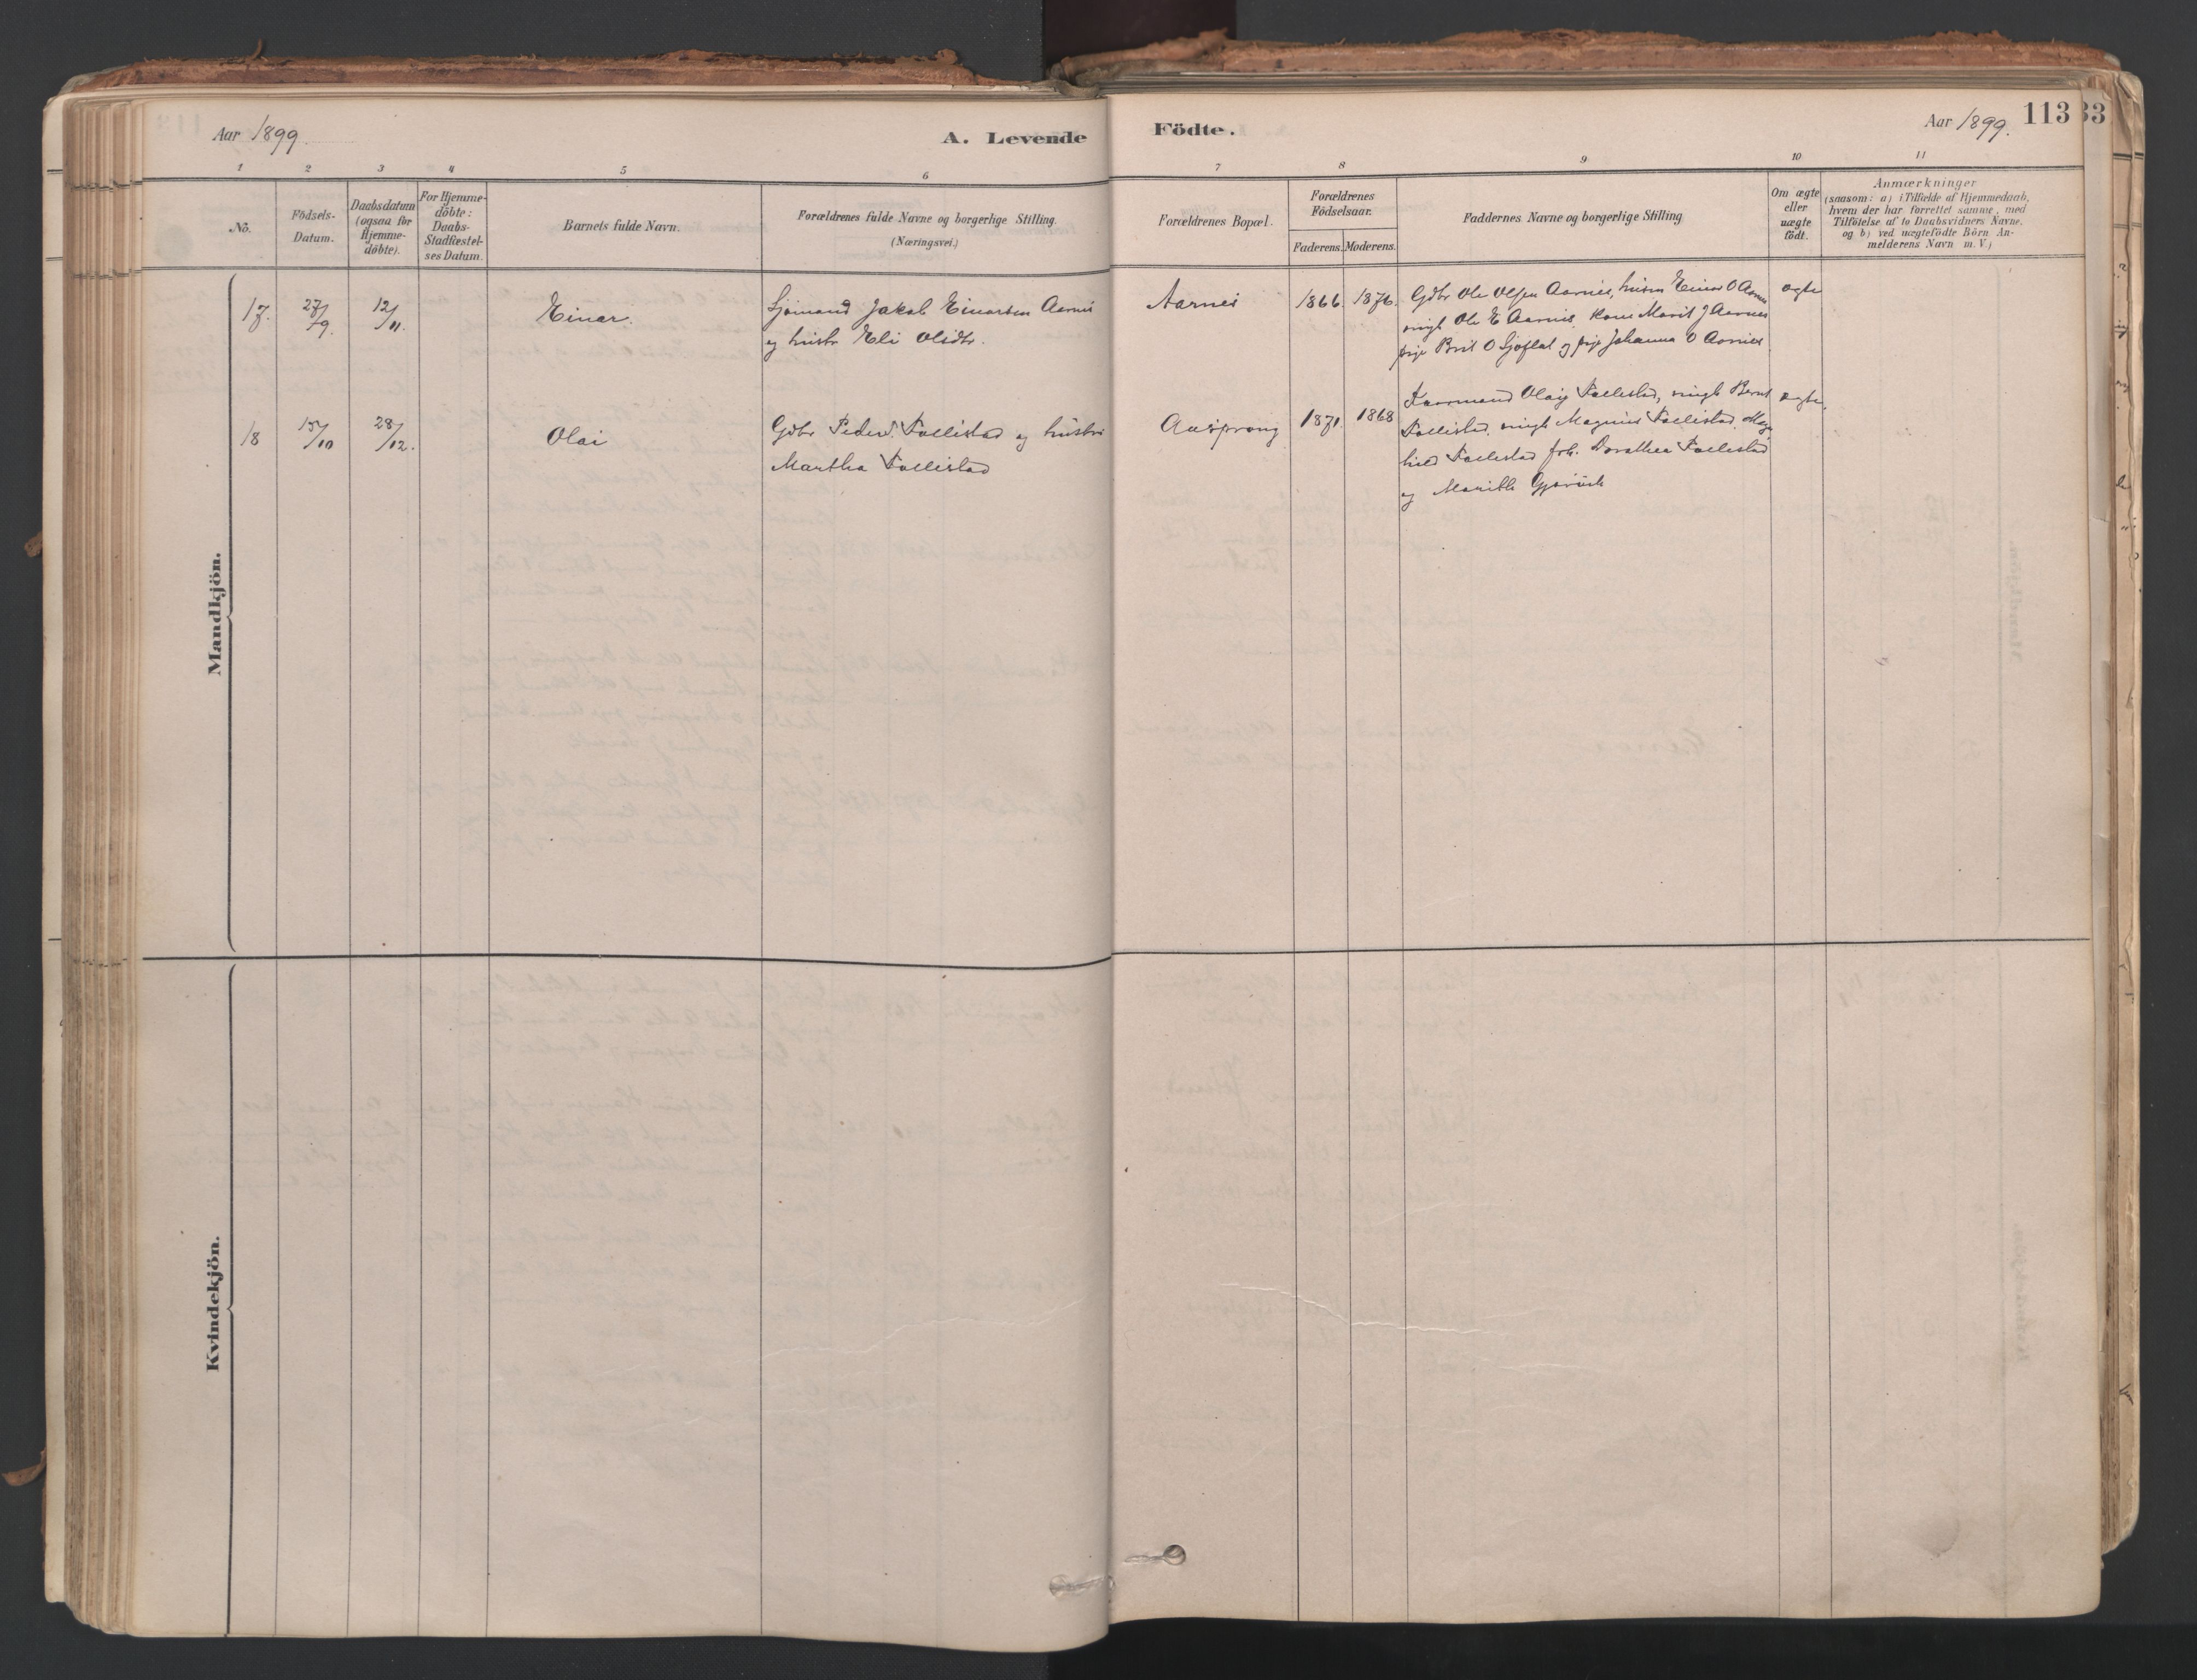 Aar 1899.
A. Levende
Födte.
Aar 1899.
113
33
1 2 3 4 5 6
7 8 9 10 11
No.
Födsels-
Datum.
Daabsdatum
(ogsaa for
Hjemme-
døbte).
For Hjemme-
döbte:
Daabs-
Stadfæstel-
ses Datum.
Barnets fulde Navn.
Forældrenes fulde Navne og borgerlige Stilling.
(Næringsvei.)
Forældrenes Bopæl.
Forældrenes
Födselsaar.
Faderens. Moderens.
Faddernes Navne og borgerlige Stilling
Om ægte
eller
uægte
födt.
Anmærkninger
(saasom: a) i Tilfælde af Hjemmedaab,
hvem der har forrettet samme, med
Tilföielse af to Daabsvidners Navne.
og b) ved uægtefödte Börn An-
melderens Navn m. V.)
Mandkjön.
17. 27/9. 12/11. Einar. Sjømand Jakob Einarsen Aarnes
og hustr Eli Olsdtr.
Aarnes 1866. 1876.
Gdbr Ole Olsen Aarnes, husm Einar O Aarnes
ungk Ole E Aarnes, Kone Marit J Aarnes
pige Brit O Sjøflat og pige Johanna O Aarnes
ægte
18 15/10 28/12. Olai
Gdbr Peder Followed Martha
Aasprang 1871. 1868
ungk Magnus
Dorathea
og
ægte.
Kvindekjön.